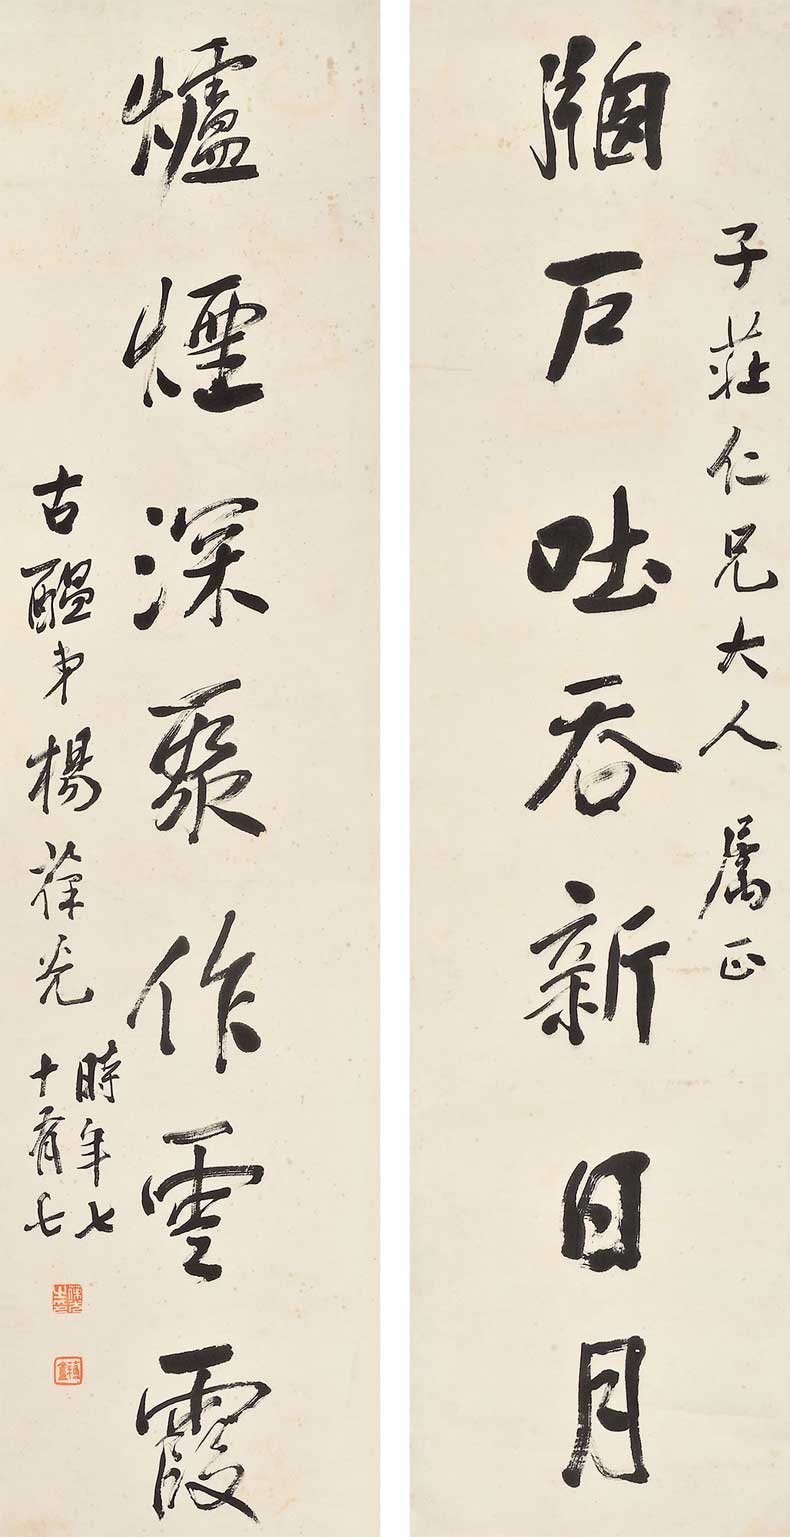 子莊仁兄大人屬正
牕戶吐吞新日月
爐煙深聚作雲霞
古醞弟楊葆光
時年七
十有七